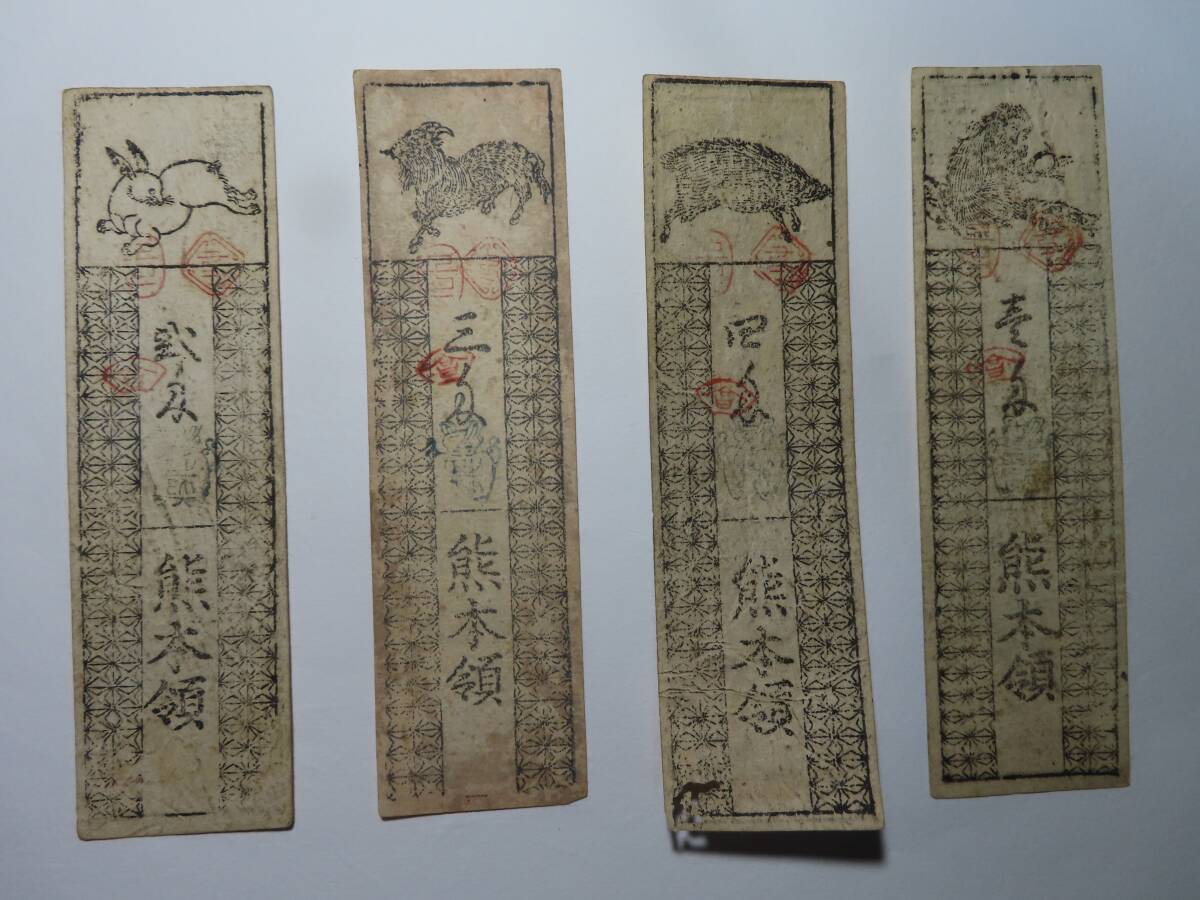 弐匁
熊本領
三匁
熊本領
四匁
熊本領
壱匁
熊本領